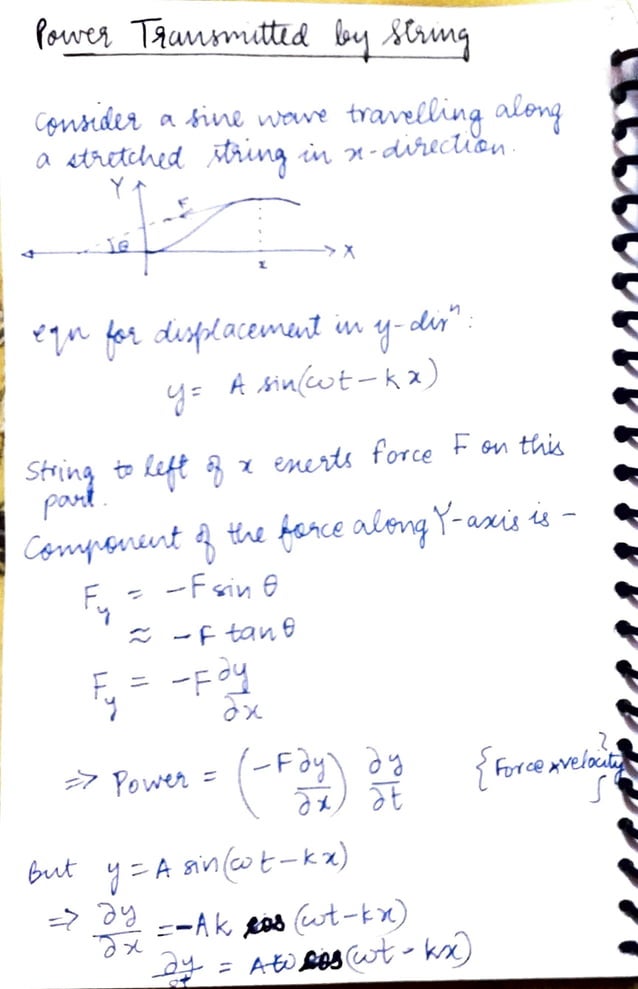 Power Transmitted by String
Consider a sine wave travelling along
a stretched string in x-direction.
Y
F
θ
X
x
eqn for displacement in y-dirⁿ:
y = A sin(ωt – kx)
String to left of x exerts force F on this
part.
Component of the force along Y-axis is –
F_y = –F sin θ
≈ –F tan θ
F_y = –F ∂y/∂x
⇒ Power = (–F ∂y/∂x) ∂y/∂t {Force × velocity}
But y = A sin(ωt – kx)
⇒ ∂y/∂x = –Ak cos (ωt – kx)
∂y/∂t = Aω cos(ωt – kx)